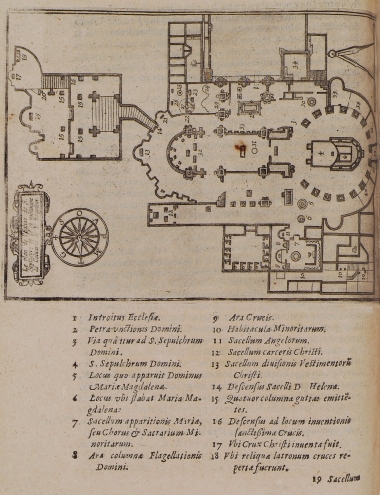 1 Introitus Ecclesiæ.
2 Petra vnctionis Domini.
3 Via quâ itur ad S. Sepulchrum
Domini.
4 S. Sepulchrum Domini.
5 Locus quo apparuit Dominus
Mariæ Magdalenæ.
6 Locus vbi stabat Maria Ma-
gdalena.
7 Sacellum apparitionis Mariæ,
seu Chorus & Sacrarium Mi-
noritarum.
8 Ara columnæ Flagellationis
Domini.
9 Ara Crucis.
10 Habitacula Minoritarum.
11 Sacellum Angelorum.
12 Sacellum carceris Christi.
13 Sacellum diuisionis Vestimentorũ
Christi.
14 Descensus Sacelli D. Helenæ.
15 Quatuor columnæ guttas emittē-
tes.
16 Descensus ad locum inuentionis
sanctissimæ Crucis.
17 Vbi Crux Christi inuenta fuit.
18 Vbi reliquæ latronum cruces re-
pertæ fuerunt.
19 Sacellum